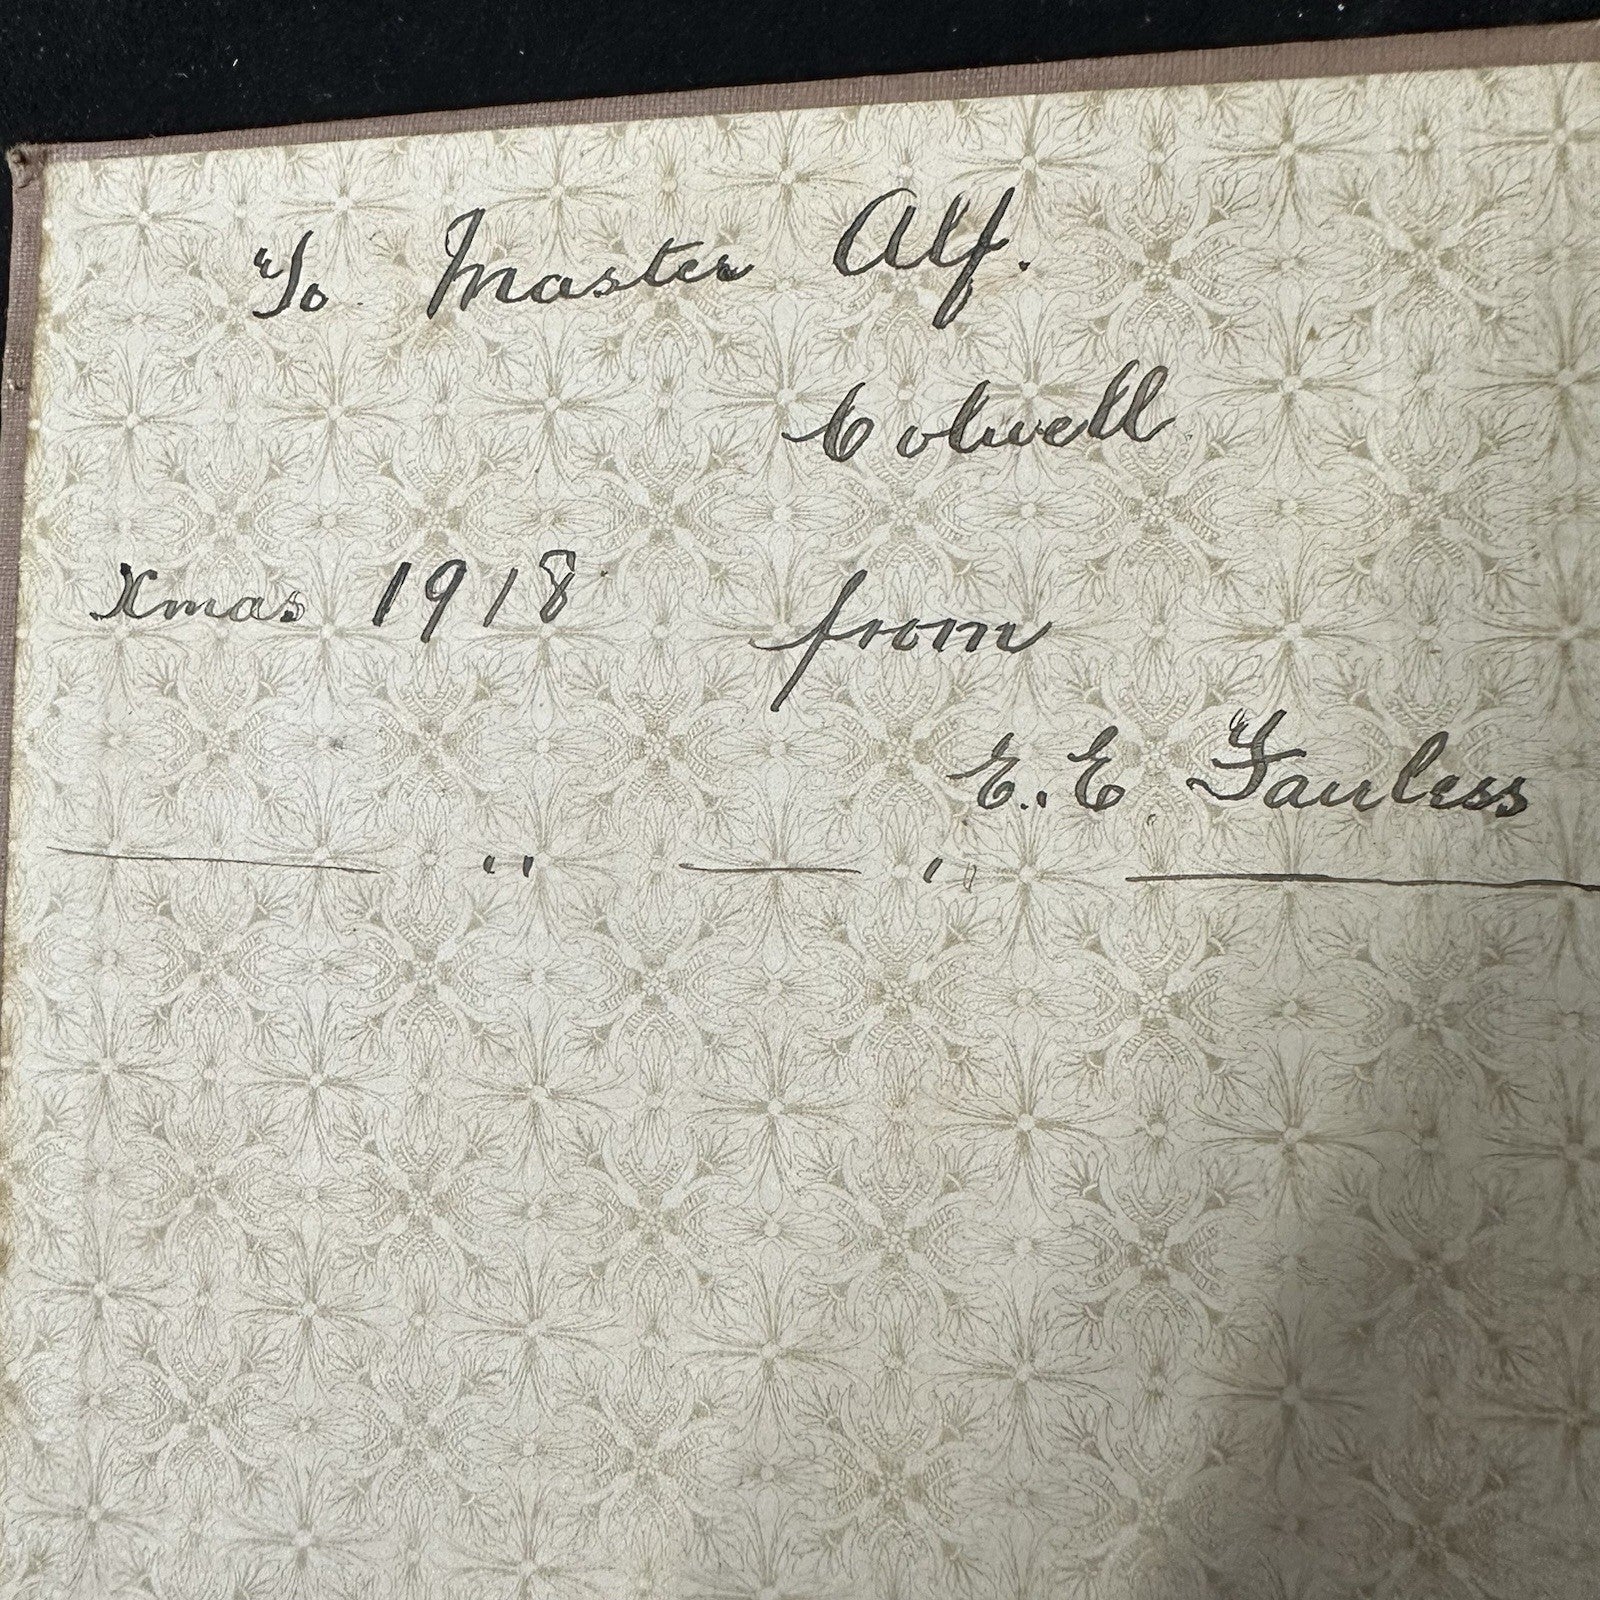 To Master Alf.
Colwell
Xmas 1918 from
E. E
— " — " —